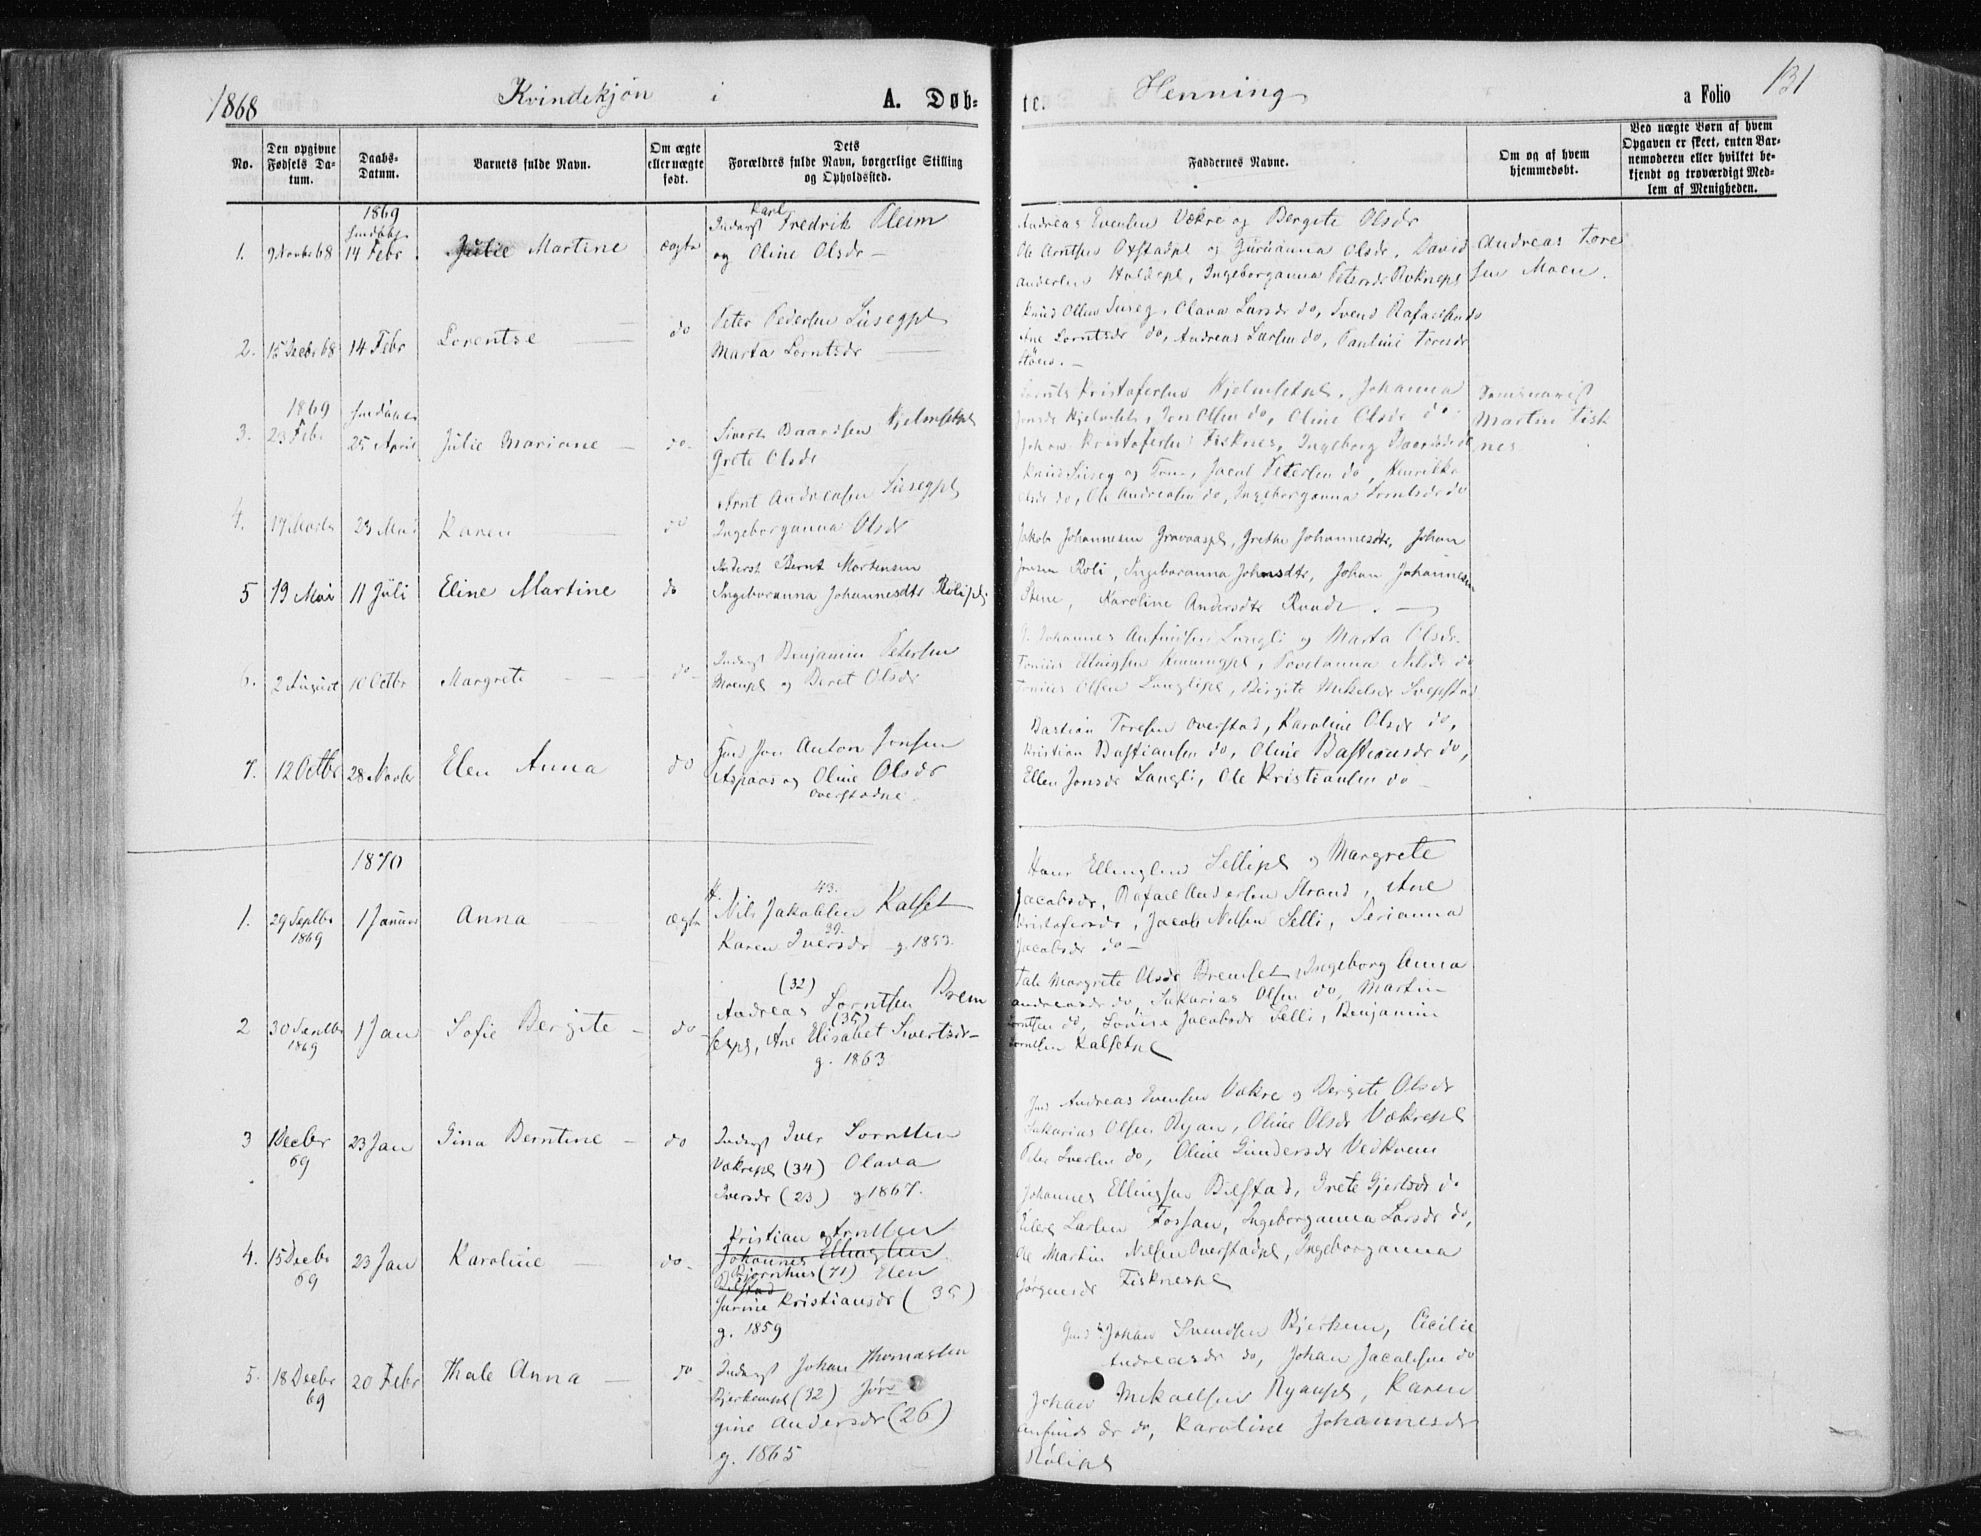 1868
Kvindekjøn i
A. Døb-
te.
Henning
a Folio
131
No.
Den opgivne Fødsels Datum.
Daabs-Datum.
Barnets fulde Navn.
Om ægte eller uægte født.
Dets Forældres fulde Navn, borgerlige Stilling og Opholdssted.
Faddernes Navne.
Om og af hvem hjemmedøbt.
Ved uægte Børn af hvem Opgaven er skeet, enten Barnemoderen eller hvilket bekjendt og troværdigt Medlem af Menigheden.
1869
1.
14 Febr
Julie Martine
ægte
Karl
Inderst Fredrik Pleim
og Oline Olsdr
Andreas Evensen Vækre og Bergite Olsdr
Ole Arntsen Oxstadpl og Guruanna Olsdr, David
Andersen Huldepl, Ingeborganna Petersdr
Andreas Tore
sen Moen.
2.
15 Decbr 68
14 Febr
Lorentse
do
Peter Pedersen Susegpl
Marta Lorntsdr
Knud Olsen Suseg, Olava Larsdr do, Svend Rafaelsen do
Ane Lorntsdr do, Andreas Larsen do, Pauline Toresdr
1869
3.
23 Febr
25 April
Julie Mariane
do
Sivert Baardsen Hjelmsetpl
Grete Olsdr
Lornts Kristofersen Hjelmsetpl, Johanna
Jonsdr Hjelmset, Jon Olsen do, Oline Olsdr do
Johan Kristofersen Fisknes, Ingeborg Baardsdr do
Seminarist
Martin Fisk
nes
4.
17 Marts
23 Mai
Karen
do
Arnt Andreasen Susegpl
Ingeborganna Olsdr
Knud Suseg og Kone, Jacob Petersen do, Henrikke
Olsdr do, Ole Andreasen do, Ingeborganna Lorntsdr do
5
19 Mai
11 Juli
Eline Martine
do
Inderst Bernt Mortensen
Ingeboranna Johannesdtr Rolipl
Jakob Johannesen Gravaaspl, Grethe Johannesdtr, Johan
Jonsen Roli, Ingeboranna Johnsdtr, Johan Johannesen
Stene, Karoline Andersdtr
6.
2 August
10 Octbr
Margrete
do
Inderst Benjamin Petersen
Moenpl og Beret Olsdr
Johannes Anfinsen Langli og Marta Olsdr.
Tomas Ellingsen, Povelanna Nilsdr do
Tomas Olsen Langlipl, Birgite Mikelsdr
7.
12 Octbr
28 Novbr
Elen Anna
do
Gmd Jon Anton Jonsen
Aspaas og Oline Olsdr
Overstadne.
Bastian Toresen Overstad, Karoline Olsdr do,
Kristian Bastiansen do, Oline Bastiansdr do,
Ellen Jonsdr Langli, Ole Kristiansen do
1870
1.
29 Septbr
1869
1 Januar
Anna
ægte
43.
Nils Jakobsen Kalset
39.
Karen Iversdr g. 1853.
Hans Ellingsen Sellipl og Margrete
Jacobsdr, Rafael Andersen Strand, Ane
Kristofersdr, Jacob Nilsen Selli, Perianna
Jacobsdr do
2
30 Septbr
1869
1 Jan
Sofie Bergite
do
(32)
Andreas Lorntsen Brem
(35)
setpl, Ane Elisabet Sivertsdr
g. 1863
Tale Margrete Olsdr Bremset, Ingeborg Anna
Andreasdr do, Sakarias Olsen do, Martin
Lorntsen do, Lovise Jacobsdr Selli, Benjamin
Lorntsen Kalsetpl
3
1 Decbr
69
23 Jan
Gina Berntine
do
Inderst Iver Lorntsen
Vækrepl (34) Olava
Iversdr (23) g 1867.
Gmd Andreas Evensen Vækre og Bergite Olsdr
Sakarias Olsen Ryan, Oline Olsdr Vækrepl
Peter Iversen do, Oline Gundersdr Vedkvem
4.
15 Decbr
69
23 Jan
Karoline
do
Kristian Arntsen
Johannes Ellingsen
Bjørnhus (71) Elen
Bilstad
Surine Kristiansdr (35)
g. 1859
Johannes Ellingsen Bilstad, Grete Gjertsdr do
Larsen Fossan, Ingeborganna Larsdr do,
Ole Martin Nilsen Overstadpl, Ingeborganna
Jørgensdr Fisknespl
5.
18 Decbr
69
20 Febr
Thale Anna
do
Inderst Johan Thomassen
Bjerkempl (32) Jør
gine Andersdr (26)
g. 1865
Gmd Johan Svendsen Bjerkem, Cecilie
Andreasdr do, Johan Jacobsen do
Johan Mikaelsen Ryanpl, Karen
Anfindsdr do, Karoline Johannesdr
Rolipl